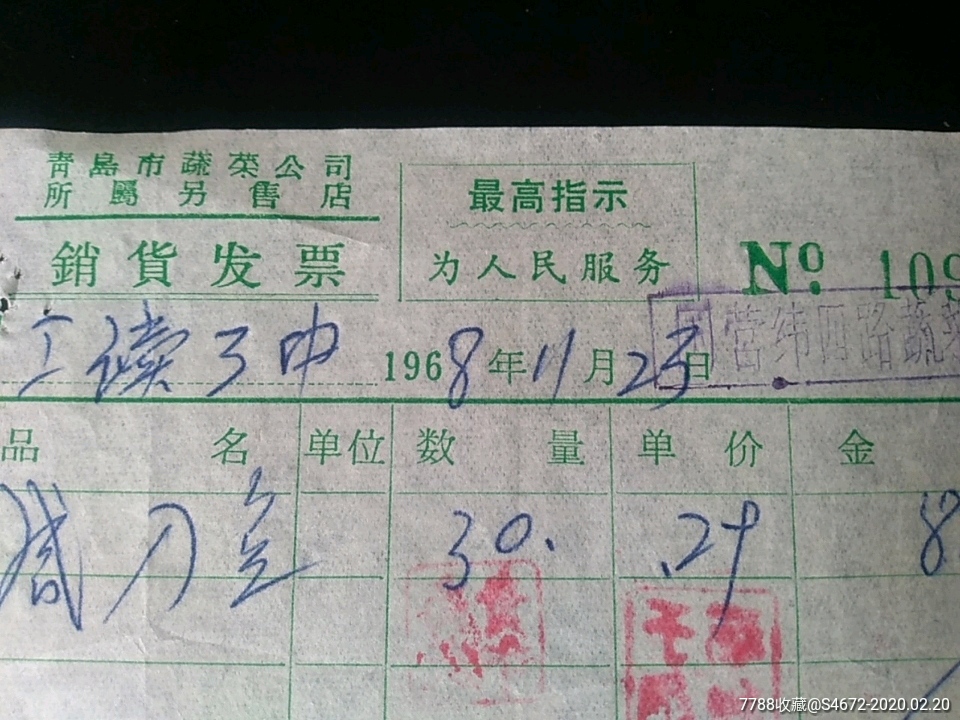 青島市蔬菜公司
所屬另售店
最高指示
銷貨发票
为人民服务
№ 109
国营纬四路蔬菜
1968年11月23日
品名 单位 数量 单价 金
30. .29 8
7788收藏@S4672-2020.02.20